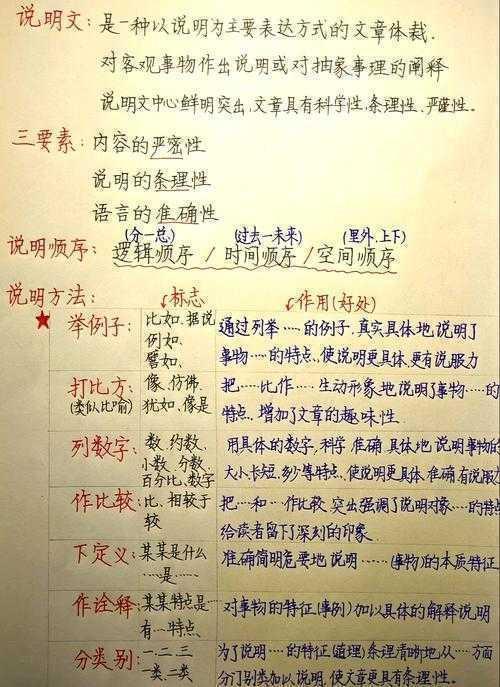 说明文: 是一种以说明为主要表达方式的文章体裁.
对客观事物作出说明或对抽象事理的阐释
说明文中心鲜明突出、文章具有科学性、条理性、严谨性。
三要素: 内容的严密性
说明的条理性
语言的准确性
(分一总) (过去一未来) (里外、上下)
说明顺序: 逻辑顺序 / 时间顺序 / 空间顺序
说明方法: 标志 作用(好处)
★ 举例子: 比如、据说 例如、 譬如、 通过列举……的例子,真实具体地说明了
事物……的特点、使说明更具体、更有说服力
打比方: (类似比喻) 像、仿佛、 犹如、像是 把……比作……生动形象地说明了事物……的
特点、增加了文章的趣味性.
列数字: 数、约数、 小数、分数、 百分比、数字 用具体的数字,科学 准确 具体地说明事物的
大小长短、多少等特点、使说明更具体、准确、有说服
作比较: 比、相较于 较 把…和…作比较、突出强调了说明对象……的特点
给读者留下了深刻的印象.
下定义: 某某是什么 ……是…… 准确简明危要地说明……(事物)的本质特征
作诠释: 某某特点是… 有…特点、 对事物的特征(事例)加以具体的解释说明
分类别: 一、二、三 一类、二类 为了说明……的特征(道理)条理清晰地从……方面
分门别类加以说明、使文章更具有条理性.